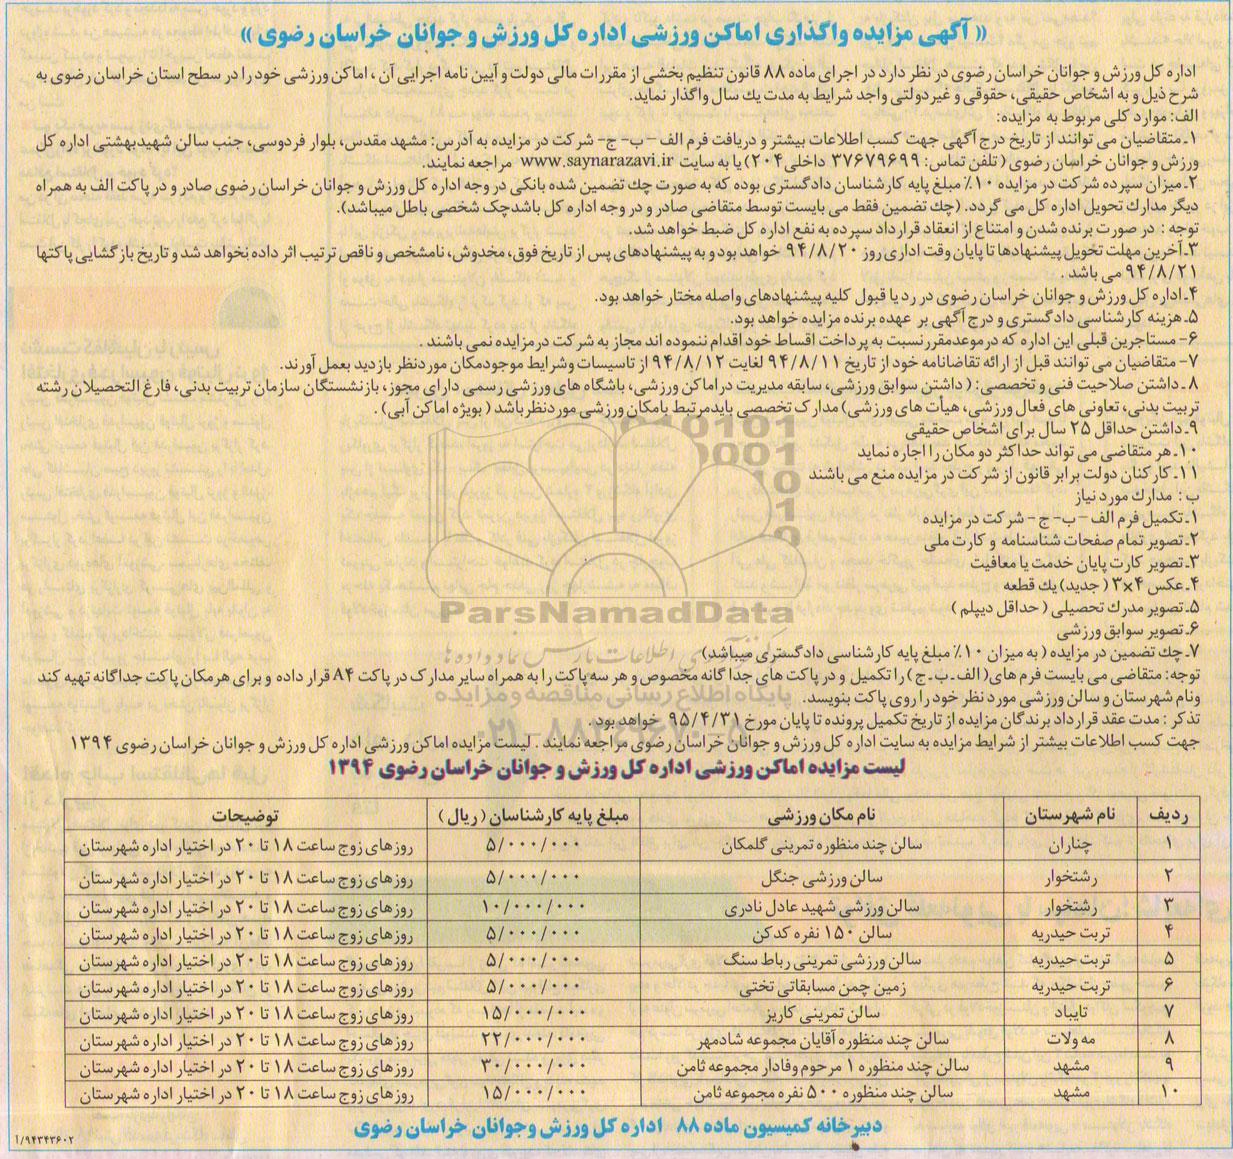 « آگهی مزایده واگذاری اماکن ورزشی اداره کل ورزش و جوانان خراسان رضوی »
اداره کل ورزش و جوانان خراسان رضوی در نظر دارد در اجرای ماده ۸۸ قانون تنظیم بخشی از مقررات مالی دولت و آیین نامه اجرایی آن ، اماکن ورزشی خود را در سطح استان خراسان رضوی به
شرح ذیل و به اشخاص حقیقی، حقوقی و غیردولتی واجد شرایط به مدت یك سال واگذار نماید.
الف: موارد کلی مربوط به مزایده:
۱ـ متقاضیان می توانند از تاریخ درج آگهی جهت کسب اطلاعات بیشتر و دریافت فرم الف – ب- ج- شرکت در مزایده به آدرس: مشهد مقدس، بلوار فردوسی، جنب سالن شهیدبهشتی اداره کل
ورزش و جوانان خراسان رضوی ( تلفن تماس: ۳۷۶۷۹۶۹۹ داخلی ۲۰۴) یا به سایت www.saynarazavi.ir مراجعه نمایند.
۲ـ میزان سپرده شرکت در مزایده ۱۰٪ مبلغ پایه کارشناسان دادگستری بوده که به صورت چك تضمین شده بانکی در وجه اداره کل ورزش و جوانان خراسان رضوی صادر و در پاکت الف به همراه
دیگر مدارك تحویل اداره کل می گردد. (چك تضمین فقط می بایست توسط متقاضی صادر و در وجه اداره کل باشدچک شخصی باطل میباشد).
توجه : در صورت برنده شدن و امتناع از انعقاد قرارداد سپرده به نفع اداره کل ضبط خواهد شد.
۳ـ آخرین مهلت تحویل پیشنهادها تا پایان وقت اداری روز ۹۴/۸/۲۰ خواهد بود و به پیشنهادهای پس از تاریخ فوق، مخدوش، نامشخص و ناقص ترتیب اثر داده نخواهد شد و تاریخ بازگشایی پاکتها
۹۴/۸/۲۱ می باشد .
۴ـ اداره کل ورزش و جوانان خراسان رضوی در رد یا قبول کلیه پیشنهادهای واصله مختار خواهد بود.
۵ـ هزینه کارشناسی دادگستری و درج آگهی بر عهده برنده مزایده خواهد بود.
۶- مستاجرین قبلی این اداره که در موعدمقرر نسبت به پرداخت اقساط خود اقدام ننموده اند مجاز به شرکت در مزایده نمی باشند .
۷- متقاضیان می توانند قبل از ارائه تقاضانامه خود از تاریخ ۹۴/۸/۱۱ لغایت ۹۴/۸/۱۲ از تاسیسات وشرایط موجودمکان موردنظر بازدید بعمل آورند.
۸ـ داشتن صلاحیت فنی و تخصصی: ( داشتن سوابق ورزشی، سابقه مدیریت دراماکن ورزشی، باشگاه های ورزشی رسمی دارای مجوز، بازنشستگان سازمان تربیت بدنی، فارغ التحصیلان رشته
تربیت بدنی، تعاونی های فعال ورزشی، هیأت های ورزشی) مدارک تخصصی بایدمرتبط بامکان ورزشی موردنظر باشد ( بویژه اماکن آبی) .
۹ـ داشتن حداقل ۲۵ سال برای اشخاص حقیقی
۱۰ـ هر متقاضی می تواند حداکثر دو مکان را اجاره نماید
۱۱ـ کارکنان دولت برابر قانون از شرکت در مزایده منع می باشند
ب : مدارك مورد نیاز
۱ـ تکمیل فرم الف – ب- ج- شرکت در مزایده
۲ـ تصویر تمام صفحات شناسنامه و کارت ملی
۳ـ تصویر کارت پایان خدمت یا معافیت
۴ـ عکس ۴×۳ ( جدید) یك قطعه
۵ـ تصویر مدرك تحصیلی ( حداقل دیپلم )
۶ـ تصویر سوابق ورزشی
۷ـ چك تضمین در مزایده ( به میزان ۱۰٪ مبلغ پایه کارشناسی دادگستری میباشد)
توجه: متقاضی می بایست فرم های( الف ـ ب ـ ج ) را تکمیل و در پاکت های جداگانه مخصوص و هر سه پاکت را به همراه سایر مدارک در پاکت A۴ قرار داده و برای هرمکان پاکت جداگانه تهیه کند
ونام شهرستان و سالن ورزشی مورد نظر خود را روی پاکت بنویسد.
تذکر : مدت عقد قرارداد برندگان مزایده از تاریخ تکمیل پرونده تا پایان مورخ ۹۵/۴/۳۱ خواهد بود .
جهت کسب اطلاعات بیشتر از شرایط مزایده به سایت اداره کل ورزش و جوانان خراسان رضوی مراجعه نمایند . لیست مزایده اماکن ورزشی اداره کل ورزش و جوانان خراسان رضوی ۱۳۹۴
ParsNamadData
پایگاه اطلاع رسانی مناقصه و مزایده
لیست مزایده اماکن ورزشی اداره کل ورزش و جوانان خراسان رضوی ۱۳۹۴
ردیف نام شهرستان نام مکان ورزشی مبلغ پایه کارشناسان ( ریال ) توضیحات
۱ چناران سالن چند منظوره تمرینی گلمکان ۵/۰۰۰/۰۰۰ روزهای زوج ساعت ۱۸ تا ۲۰ در اختیار اداره شهرستان
۲ رشتخوار سالن ورزشی جنگل ۵/۰۰۰/۰۰۰ روزهای زوج ساعت ۱۸ تا ۲۰ در اختیار اداره شهرستان
۳ رشتخوار سالن ورزشی شهید عادل نادری ۱۰/۰۰۰/۰۰۰ روزهای زوج ساعت ۱۸ تا ۲۰ در اختیار اداره شهرستان
۴ تربت حیدریه سالن ۱۵۰ نفره کدکن ۵/۰۰۰/۰۰۰ روزهای زوج ساعت ۱۸ تا ۲۰ در اختیار اداره شهرستان
۵ تربت حیدریه سالن ورزشی تمرینی رباط سنگ ۵/۰۰۰/۰۰۰ روزهای زوج ساعت ۱۸ تا ۲۰ در اختیار اداره شهرستان
۶ تربت حیدریه زمین چمن مسابقاتی تختی ۵/۰۰۰/۰۰۰ روزهای زوج ساعت ۱۸ تا ۲۰ در اختیار اداره شهرستان
۷ تایباد سالن تمرینی کاریز ۱۵/۰۰۰/۰۰۰ روزهای زوج ساعت ۱۸ تا ۲۰ در اختیار اداره شهرستان
۸ مه ولات سالن چند منظوره آقایان مجموعه شادمهر ۲۲/۰۰۰/۰۰۰ روزهای زوج ساعت ۱۸ تا ۲۰ در اختیار اداره شهرستان
۹ مشهد سالن چند منظوره ۱ مرحوم وفادار مجموعه ثامن ۳۰/۰۰۰/۰۰۰ روزهای زوج ساعت ۱۸ تا ۲۰ در اختیار اداره شهرستان
۱۰ مشهد سالن چند منظوره ۵۰۰ نفره مجموعه ثامن ۱۵/۰۰۰/۰۰۰ روزهای زوج ساعت ۱۸ تا ۲۰ در اختیار اداره شهرستان
دبیرخانه کمیسیون ماده ۸۸ اداره کل ورزش وجوانان خراسان رضوی
۱/۹۴۳۴۳۶۰۲